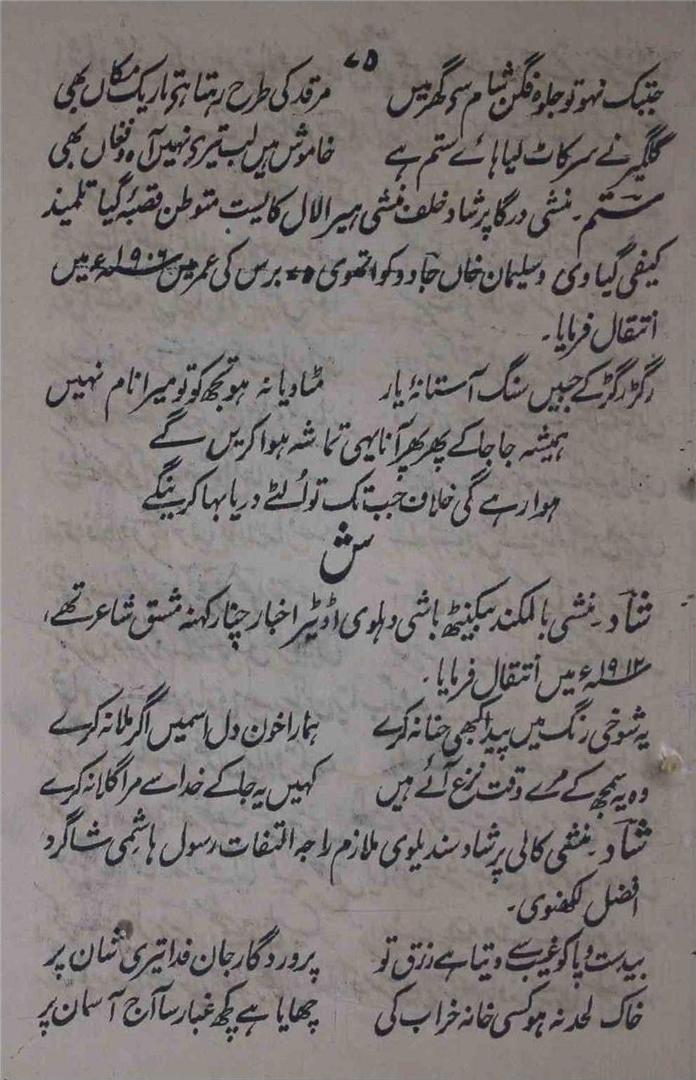 ۷۵
جبتک نہو تو جلوہ فگن شام سے گھر میں مرقد کی طرح رہتا ہے تاریک مکاں بھی
گلگیر نے سر کاٹ لیا ہائے ستم ہے خاموش ہیں لب تیری نہیں آہ و فغاں بھی
ستم۔ منشی درگا پرشاد خلف منشی ہیرا لال کایست متوطن قصبۂ گیا تلمیذ
کیفی گیاوی و سلیمان خاں جادو کوانتھوی برس کی عمر میں ۱۹۰۶ء میں
انتقال فرمایا۔
رگڑ رگڑ کے جبیں سنگ آستانۂ یار مٹا دیا نہ ہو تجھ کو تو میرا نام نہیں
ہمیشہ جا جا کے پھر پھر آنا یہی تماشہ ہوا کریں گے
ہوا رہے گی خلاف جب تک تو اُلٹے دریا بہا کرینگے
ش
شاد۔ منشی بالمکند بیکنیٹھ باشی دہلوی اڈیٹر اخبار چنار کہنہ مشق شاعر تھے،
۱۹۱۲ء میں انتقال فرمایا۔
یہ شوخی رنگ میں پیدا کبھی حنا نہ کرے ہمارا خون دل اسمیں اگر ملا نہ کرے
وہ یہ سمجھ کے مرے وقت نزع آئے ہیں کہیں یہ جا کے خدا سے مرا گلا نہ کرے
شاد۔ منشی کالی پرشاد سندیلوی ملازم راجہ التفات رسول ہاشمی شاگرد
افضل لکھنوی۔
بیدست و پا کو غیب سے دیتا ہے رزق تو پروردگار جان فدا تیری شان پر
خاک لحد نہ ہو کسی خانہ خراب کی چھایا ہے کچھ غبار سا آج آسمان پر